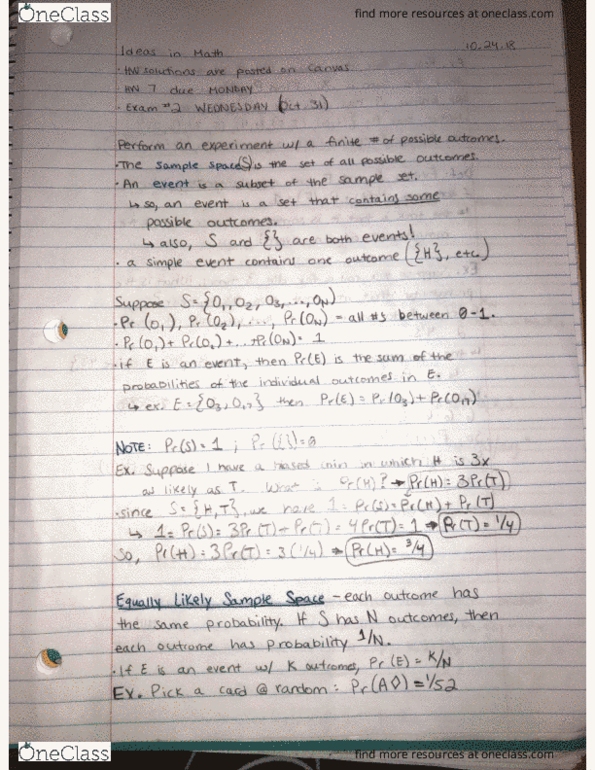 OneClass
find more resources at oneclass.com
Ideas in Math 10.24.18
· HW solutions are posted on Canvas
· HW 7 due MONDAY
· Exam #2 WEDNESDAY (Oct. 31)
Perform an experiment w/ a finite # of possible outcomes.
· The sample space(S) is the set of all possible outcomes.
· An event is a subset of the sample set.
↳ so, an event is a set that contains some
possible outcomes.
↳ also, S and {} are both events!
· a simple event contains one outcome ({H}, etc.)
Suppose S={O₁, O₂, O₃, ..., Oₙ}
· Pr(O₁), Pr(O₂), ..., Pr(Oₙ) = all #s between 0-1.
· Pr(O₁) + Pr(O₂) + ... + Pr(Oₙ) = 1
· if E is an event, then Pr(E) is the sum of the
probabilities of the individual outcomes in E.
↳ ex. E = {O₃, O₁₇} then Pr(E) = Pr(O₃) + Pr(O₁₇)
NOTE: Pr(S) = 1 ; Pr({}) = 0
Ex. Suppose I have a biased coin in which H is 3x
as likely as T. What is Pr(H)? → Pr(H) = 3Pr(T)
· since S = {H,T}, we have 1 = Pr(S) = Pr(H) + Pr(T)
↳ 1 = Pr(S) = 3Pr(T) + Pr(T) = 4Pr(T) = 1 → Pr(T) = 1/4
So, Pr(H) = 3Pr(T) = 3(1/4) → Pr(H) = 3/4
Equally Likely Sample Space - each outcome has
the same probability. If S has N outcomes, then
each outcome has probability 1/N.
· If E is an event w/ K outcomes, Pr(E) = K/N
Ex. Pick a card @ random: Pr(A◊) = 1/52
OneClass
find more resources at oneclass.com